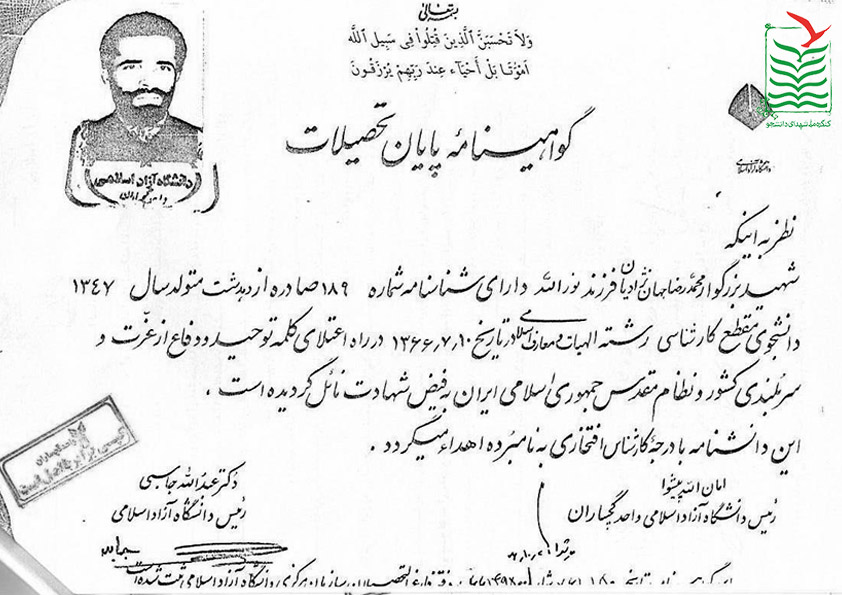 بسمه تعالی
وَلاَ تَحْسَبَنَّ ٱلَّذِینَ قُتِلُواْ فِی سَبِیلِ ٱللَّهِ
أَمْوَٰتًا بَلْ أَحْیَآء عِندَ رَبِّهِمْ یُرْزَقُونَ
کنگره ملی شهدای دانشجو
دانشگاه آزاد اسلامی
گواهینامه پایان تحصیلات
دانشگاه آزاد اسلامی
نظر به اینکه
شهید بزرگوار محمدرضا جهان نژادیان فرزند نوراله دارای شناسنامه شماره ۱۸۹ صادره از دهدشت متولد سال ۱۳۴۷
دانشجوی مقطع کارشناسی رشته الهیات و معارف اسلامی در تاریخ ۱۳۶۶٫۷٫۱۰ در راه اعتلای کلمه توحید و دفاع از عزّت و
سربلندی کشور و نظام مقدس جمهوری اسلامی ایران به فیض شهادت نائل گردیده است .
این دانشنامه با درجه کارشناس افتخاری به نامبرده اهداء میگردد .
امان الله پیشوا
رئیس دانشگاه آزاد اسلامی واحد گچساران
دکتر عبدالله جاسبی
رئیس دانشگاه آزاد اسلامی
دانشگاه آزاد اسلامی ثبت شده است